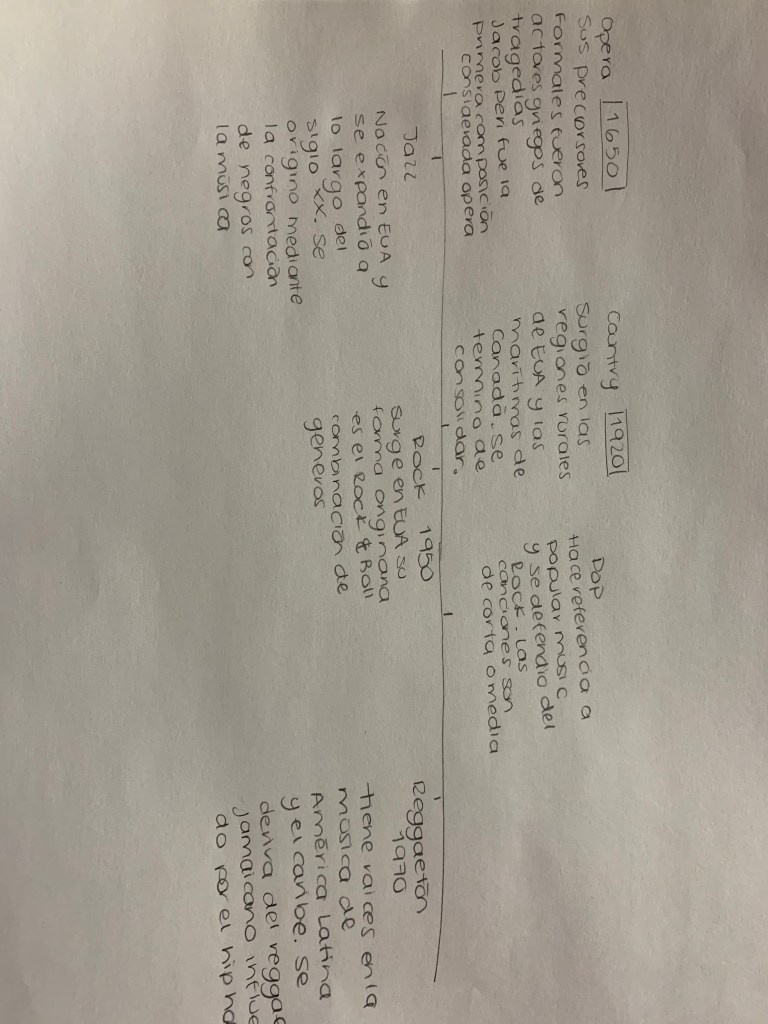 Opera 1650
Sus precursores
formales fueron
actores griegos de
tragedias
Jacob peri fue la
primera composición
considerada opera
Country 1920
Surgió en las
regiones rurales
de EUA y las
marítimas de
Canadá. Se
termino de
consolidar.
Pop
Hace referencia a
popular music
y se defendio del
Rock. Las
canciones son
de corta o media
Jazz
Nación en EUA y
se expandió a
lo largo del
siglo XX. Se
origino mediante
la confrontación
de negros con
la música
Rock 1950
Surge en EUA su
forma originaria
es el Rock & Roll
combinación de
generos
Reggaetón
1970
tiene raices en la
música de
América Latina
y el caribe. Se
deriva del reggae
jamaicano influe
do por el hip ho